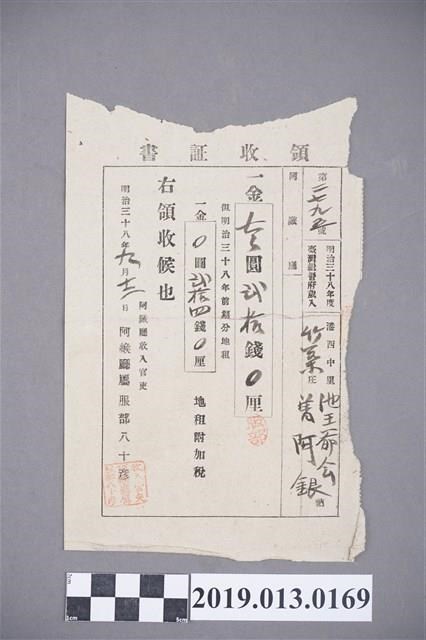 領收証書
第二七九五號
明治三十八年度
臺灣總督府歲入
阿緱廳
港西中里
竹葉庄
池王爺会
曾阿銀
納
一金 圓貳拾錢0厘
但明治三十八年前期分地租
一金0圓貳拾四錢0厘
地租附加稅
右領收候也
明治三十八年九月 日
阿緱廳收入官吏
阿緱廳屬服部八十彥
服部
7cm
1cm
5cm
2019.013.0169